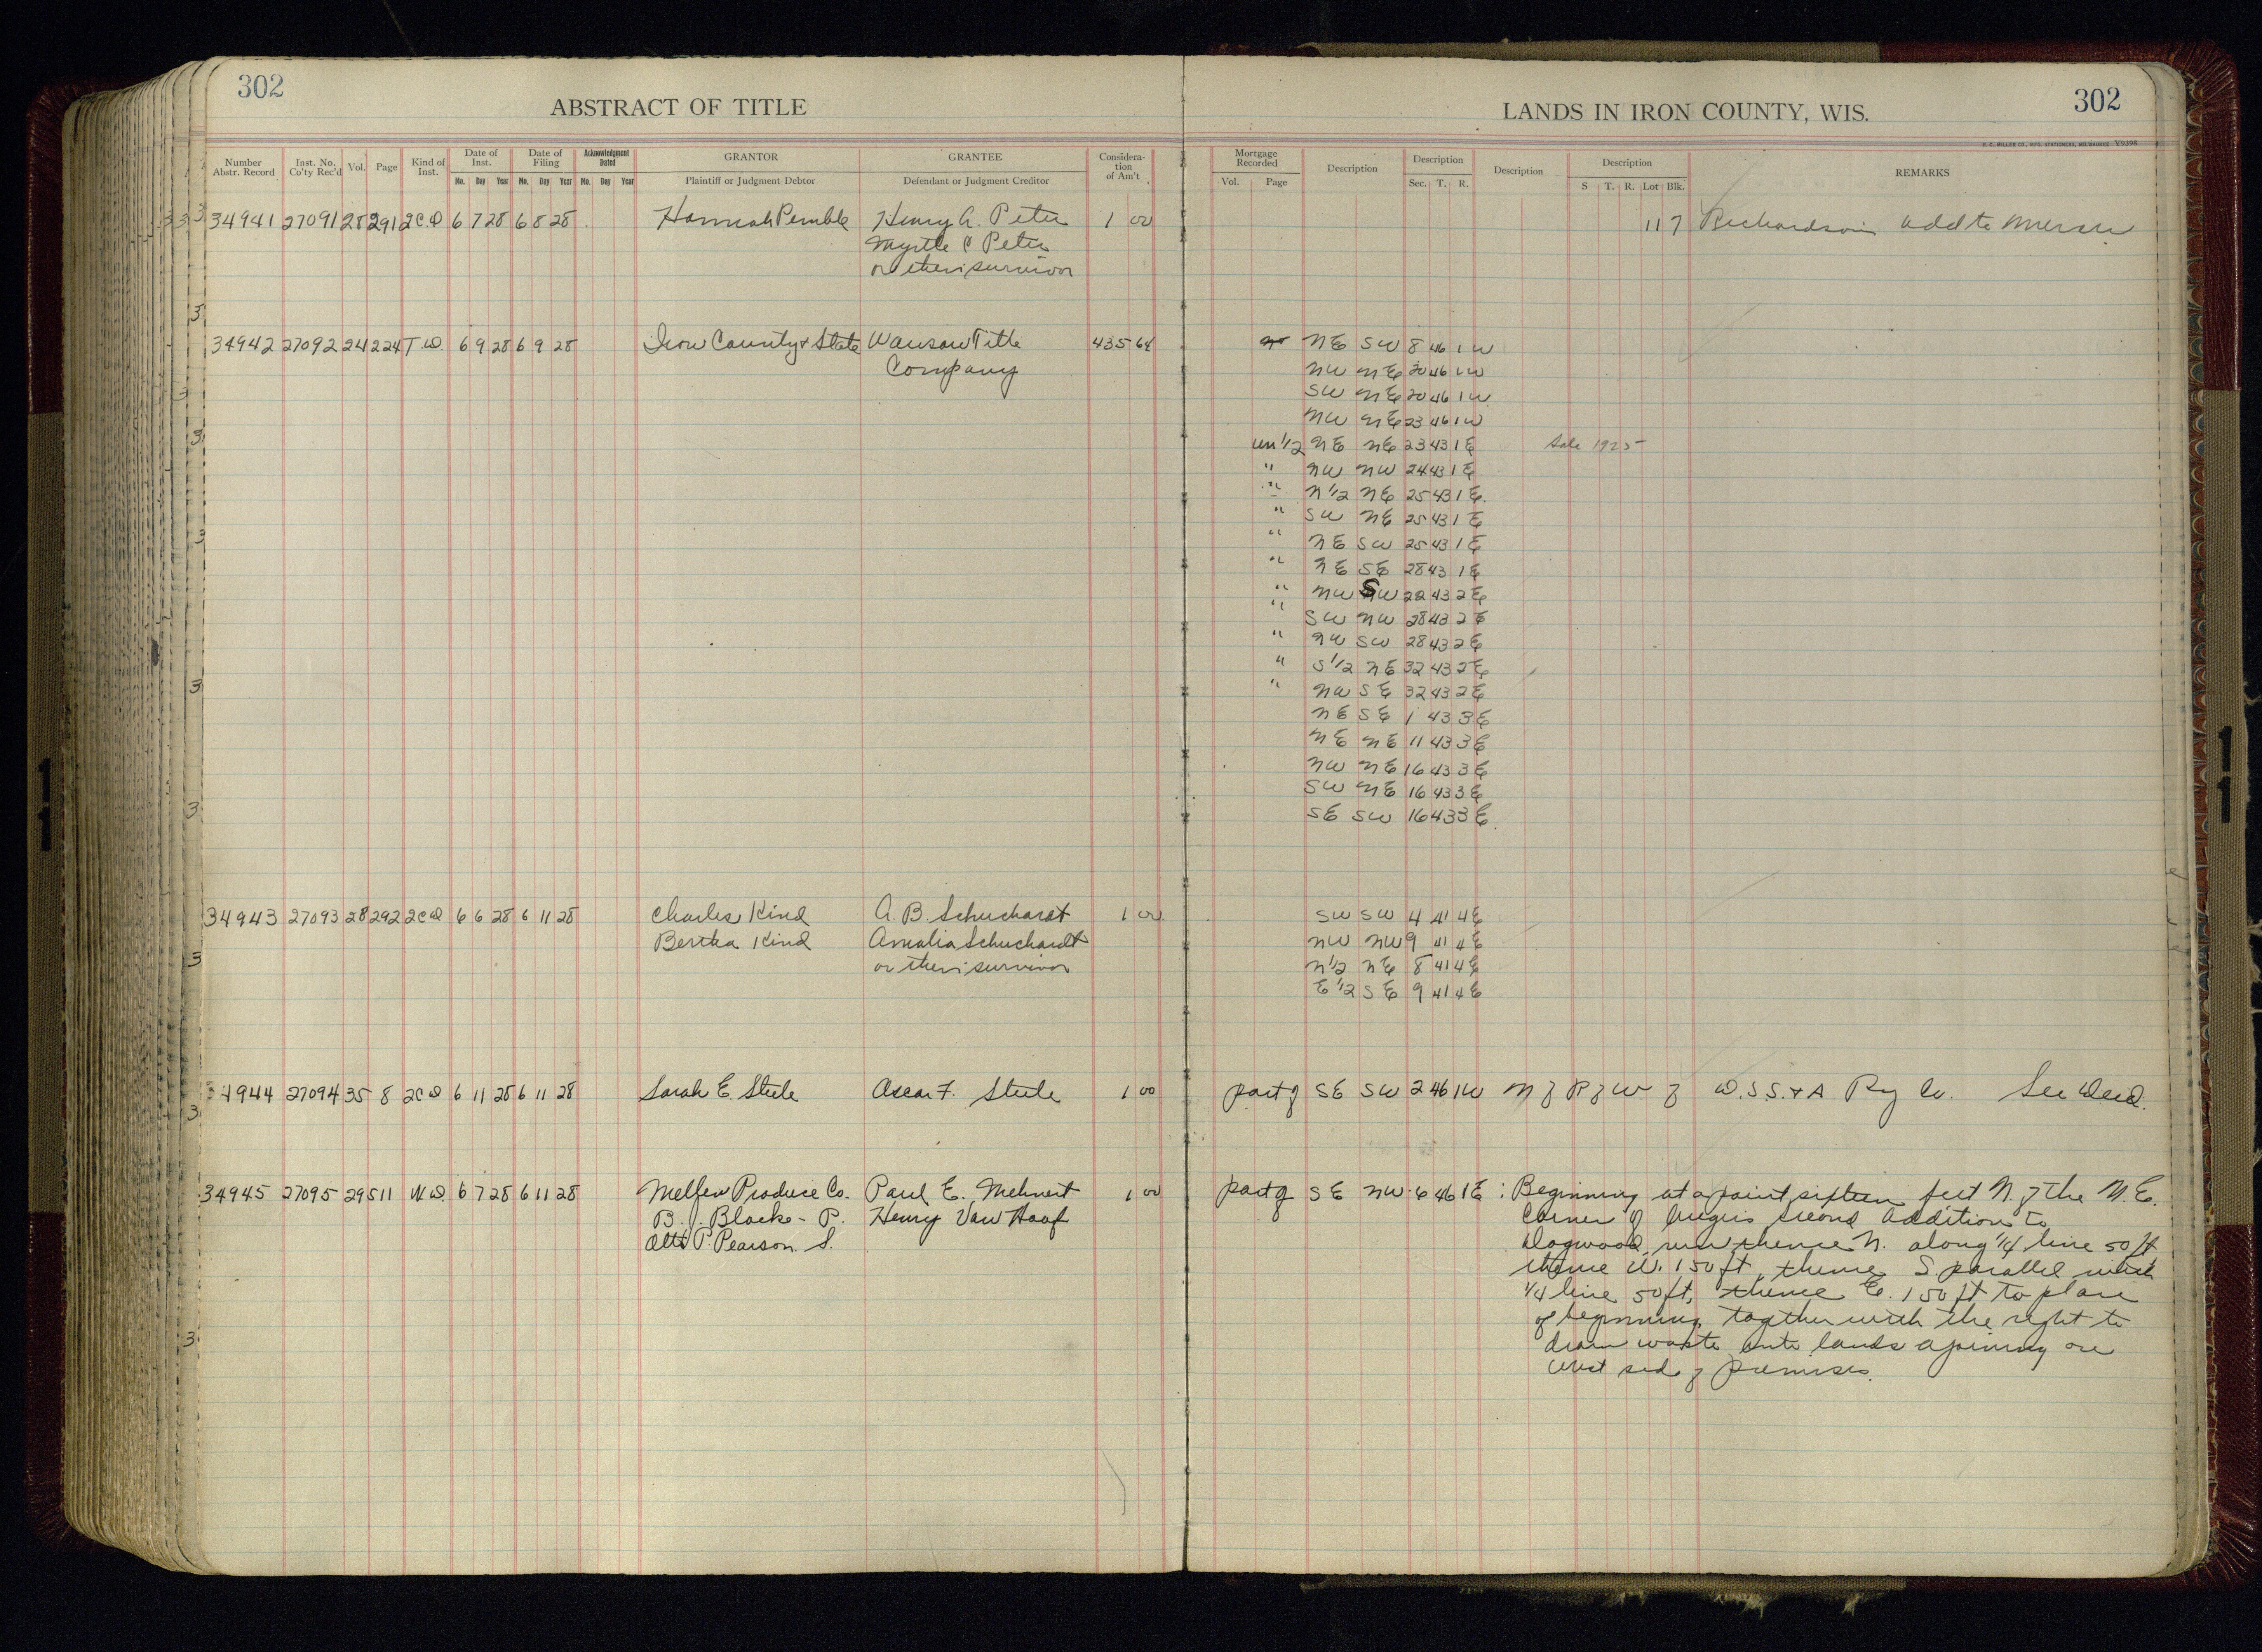 302
ABSTRACT OF TITLE
LANDS IN IRON COUNTY, WIS.
302
H. C. MILLER CO., MFG. STATIONERS, MILWAUKEE Y9398
Number Abstr. Record Inst. No. Co'ty Rec'd Vol. Page Kind of Inst. Date of Inst. Mo. Day Year Date of Filing Mo. Day Year Acknowledgment Dated Mo. Day Year GRANTOR Plaintiff or Judgment Debtor GRANTEE Defendant or Judgment Creditor Considera- tion of Am't
Mortgage Recorded Vol. Page Description Description Sec. T. R. Description Description S T. R. Lot Blk. REMARKS
34941 27091 28 291 2C.D 6 7 28 6 8 28 Hannah Pemble Henry A. Peter 1 00 11 7 Richardson's add to Mercer
Myrtle C Peter
or their survivor
34942 27092 24 224 T.D. 6 9 28 6 9 28 Iron County & State Wausau Title 435 64 NE SW 8 46 1 W
Company NW NE 20 46 1 W
SW NE 20 46 1 W
NW NE 23 46 1 W
un 1/2 NE NE 23 43 1 E Sale 1925
" NW NW 24 43 1 E
" N 1/2 NE 25 43 1 E.
" SW NE 25 43 1 E
" NE SW 25 43 1 E
" NE SE 28 43 1 E
" NW SW 22 43 2 E
" SW NW 28 43 2 E
" NW SW 28 43 2 E
" S 1/2 NE 32 43 2 E
" NW SE 32 43 2 E
NE SE 1 43 3 E
NE NE 11 43 3 E
NW NE 16 43 3 E
SW NE 16 43 3 E
SE SW 16 43 3 E.
34943 27093 28 292 2CD 6 6 28 6 11 28 Charles Kind A. B. Schuchardt 1 00 SW SW 4 41 4 E
Bertha Kind Amalia Schuchardt NW NW 9 41 4 E
or their survivor N 1/2 NE 8 41 4 E
E 1/2 SE 9 41 4 E
34944 27094 35 8 2CD 6 11 28 6 11 28 Sarah E. Steele Oscar F. Steele 1 00 part of SE SW 2 46 1 W N of R of W of D.S.S. & A Ry Co. See Deed.
34945 27095 29 511 W.D. 6 7 28 6 11 28 Melfen Produce Co. Paul E. Mehnert 1 00 part of SE NW 6 46 1 E : Beginning at a point sixteen feet N. of the N.E.
B. J. Blacke - P. Henry Van Haaf Corner of second addition to
Otto P. Pearson. S. Dogwood, run thence N. along 1/4 line 50 ft
thence W. 150 ft, thence S parallel with
1/4 line 50 ft, thence E. 150 ft to place
of beginning, together with the right to
drain waste onto lands ajoining on
West side of premises.